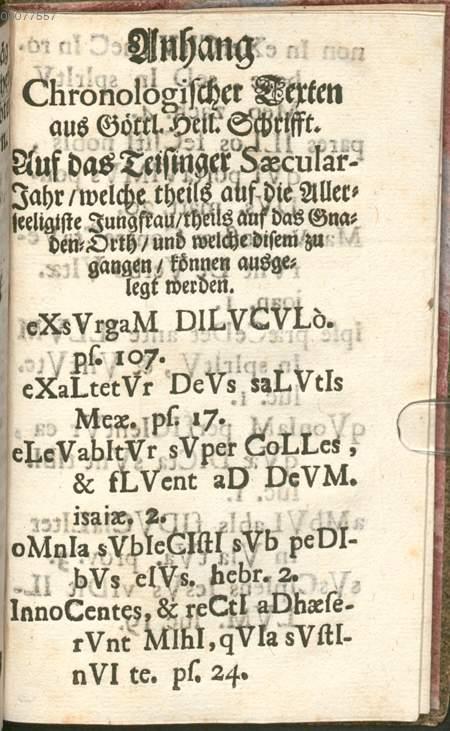 077557
Anhang
Chronologiſcher Texten
aus Göttl. Heil. Schrifft.
Auf das Teiſinger Sæcular-
Jahr / welche theils auf die Aller-
ſeeligiſte Jungfrau / theils auf das Gna-
den-Orth / und welche diſem zu
gangen / können ausge-
legt werden.
eXsVrgaM DILVCVLò.
pſ. 107.
eXaLtetVr DeVs saLVtIs
Meæ. pſ. 17.
eLeVabItVr sVper CoLLes ,
& fLVent aD DeVM.
isaiæ. 2.
oMnIa sVbIeCIſtI sVb peDI-
bVs eIVs. hebr. 2.
InnoCentes, & reCtI aDhæſe-
rVnt MIhI, qVIa sVſtI-
nVI te. pſ. 24.